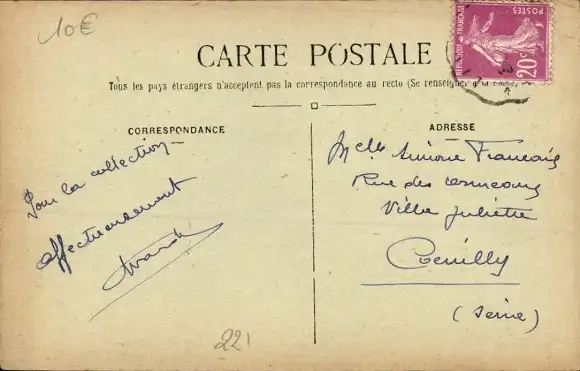 10€
CARTE POSTALE
Tous les pays étrangers n'acceptent pas la correspondance au recto (Se renseigner à la
RÉPUBLIQUE FRANÇAISE
POSTES
20c
CORRESPONDANCE
ADRESSE
Pour la collection
affectueusement
Melle Simone Francais
Rue des
Villa Juliette
Coeuilly
(Seine)
221